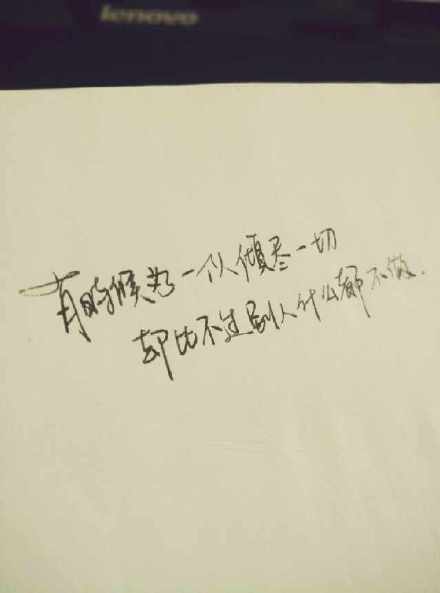 lenovo
有时候为一个人倾尽一切
却比不过别人什么都不做.